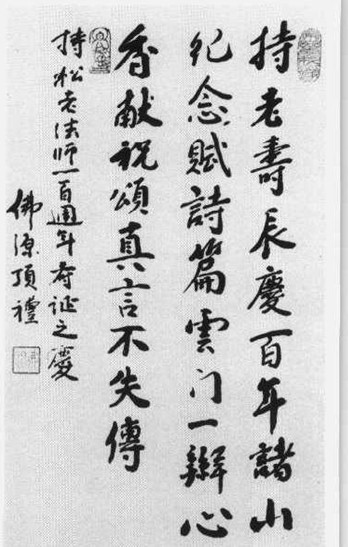 持老壽長慶百年諸山
紀念賦詩篇雲门一辦心
香献祝頌真言不失傳
持松老法师一百週年寿诞之慶
佛源頂禮